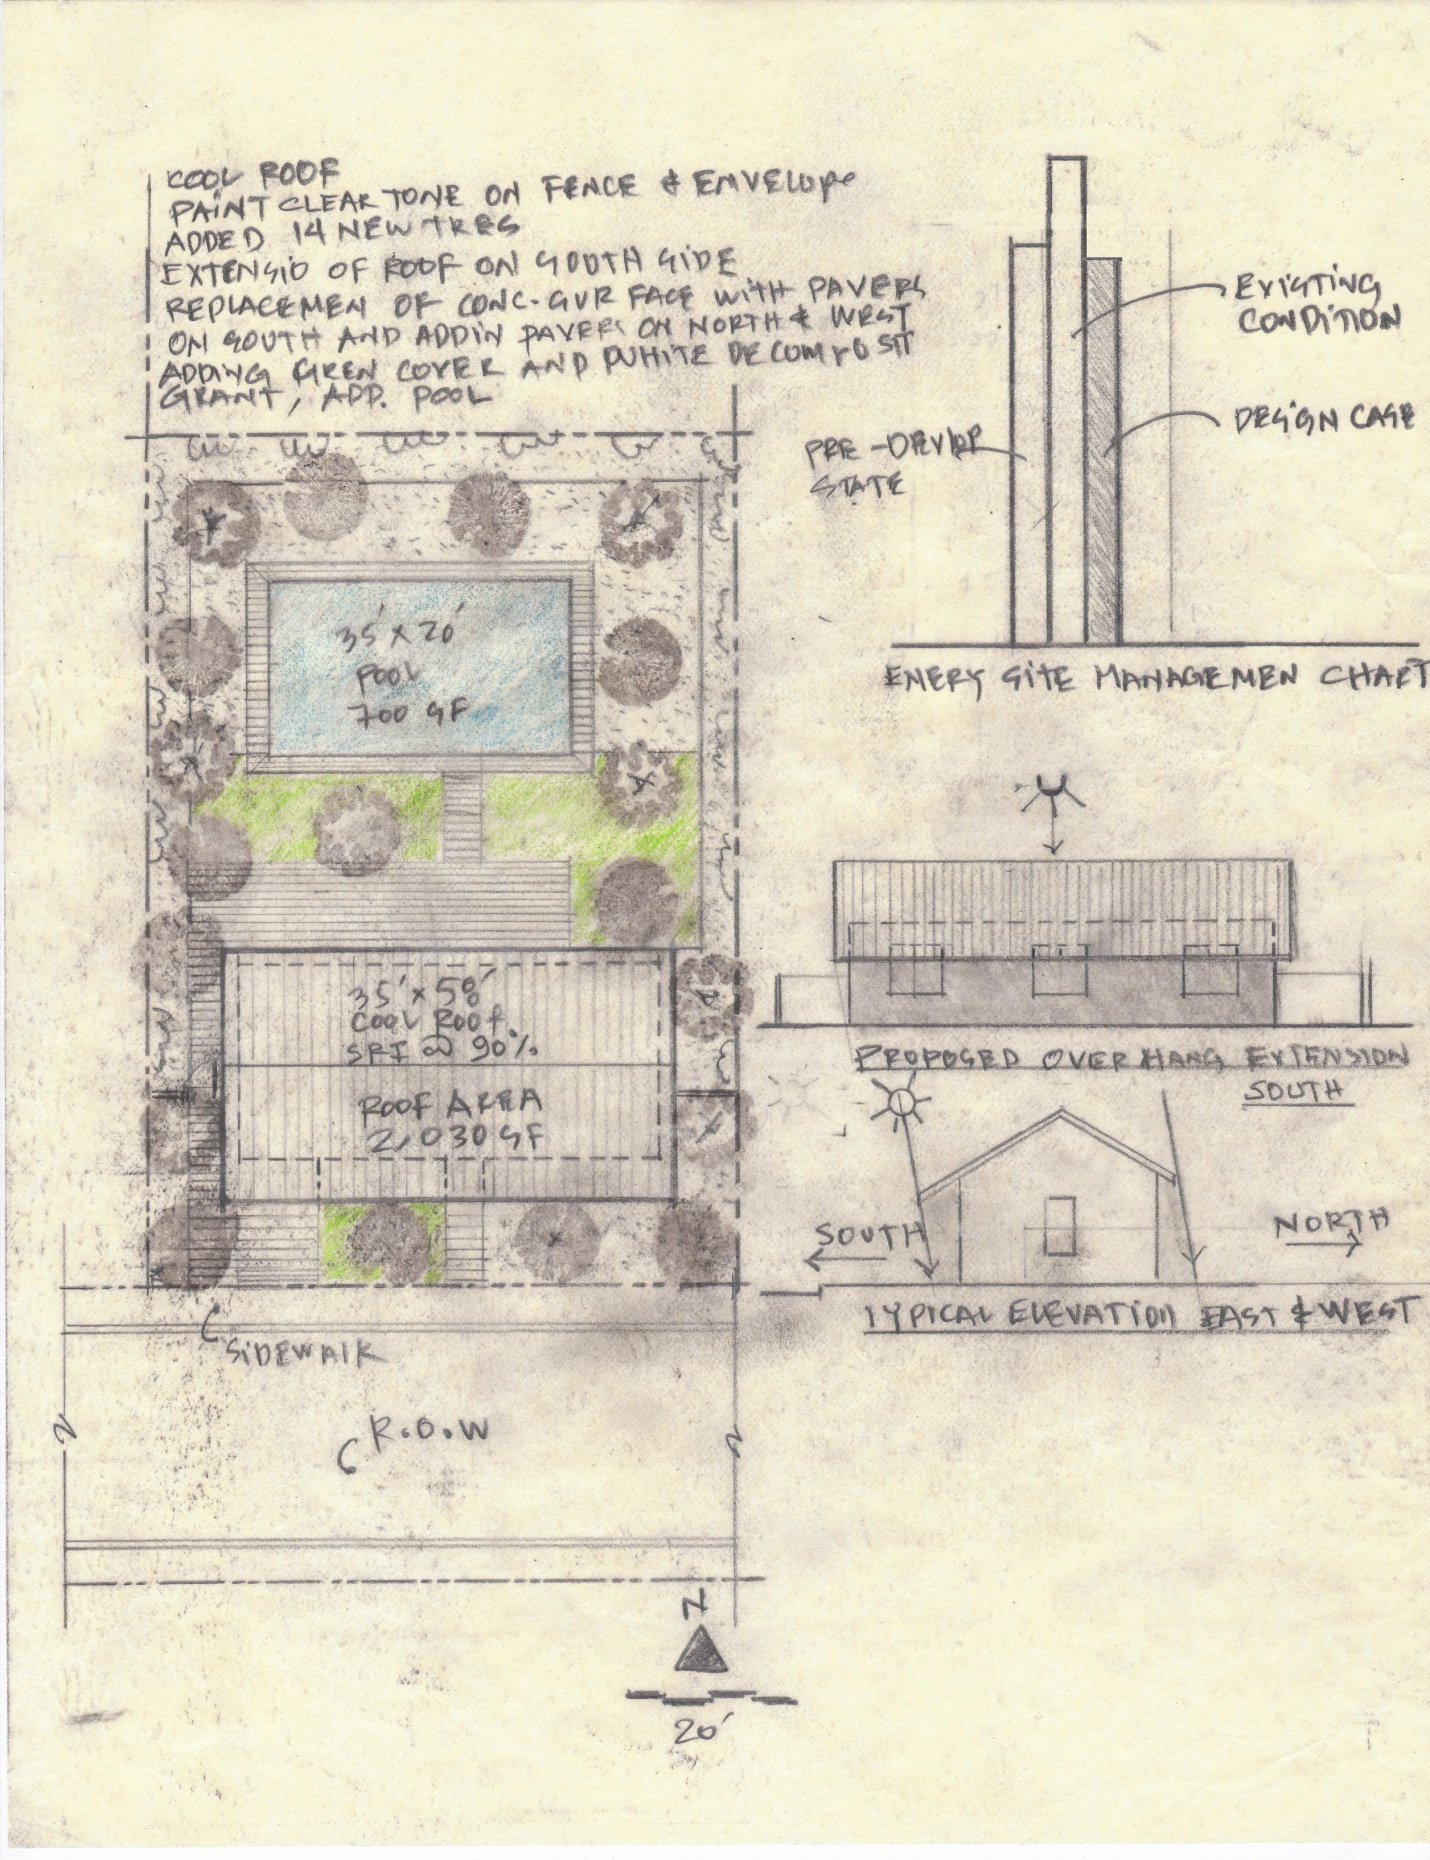 COOL ROOF
PAINT CLEAR TONE ON FENCE & ENVELOPE
ADDED 14 NEW TRES
EXTENSIO OF ROOF ON SOUTH SIDE
REPLACEMEN OF CONC. SUR FACE WITH PAVERS
ON SOUTH AND ADDIN PAVERS ON NORTH & WEST
ADDING GREN COVER AND WHITE DECOMPOSIT
GRANT, ADD. POOL
EXISTING
CONDITION
DESIGN CASE
PRE-DEVLOP
STATE
ENERY SITE MANAGEMEN CHART
35' X 20'
POOL
700 SF
35' X 58'
COOL ROOF
SRI @ 90%
ROOF AREA
2,030 SF
PROPOSED OVER HANG EXTENSION
SOUTH
SOUTH
NORTH
TYPICAL ELEVATION EAST & WEST
SIDEWALK
R.O.W
N
20'